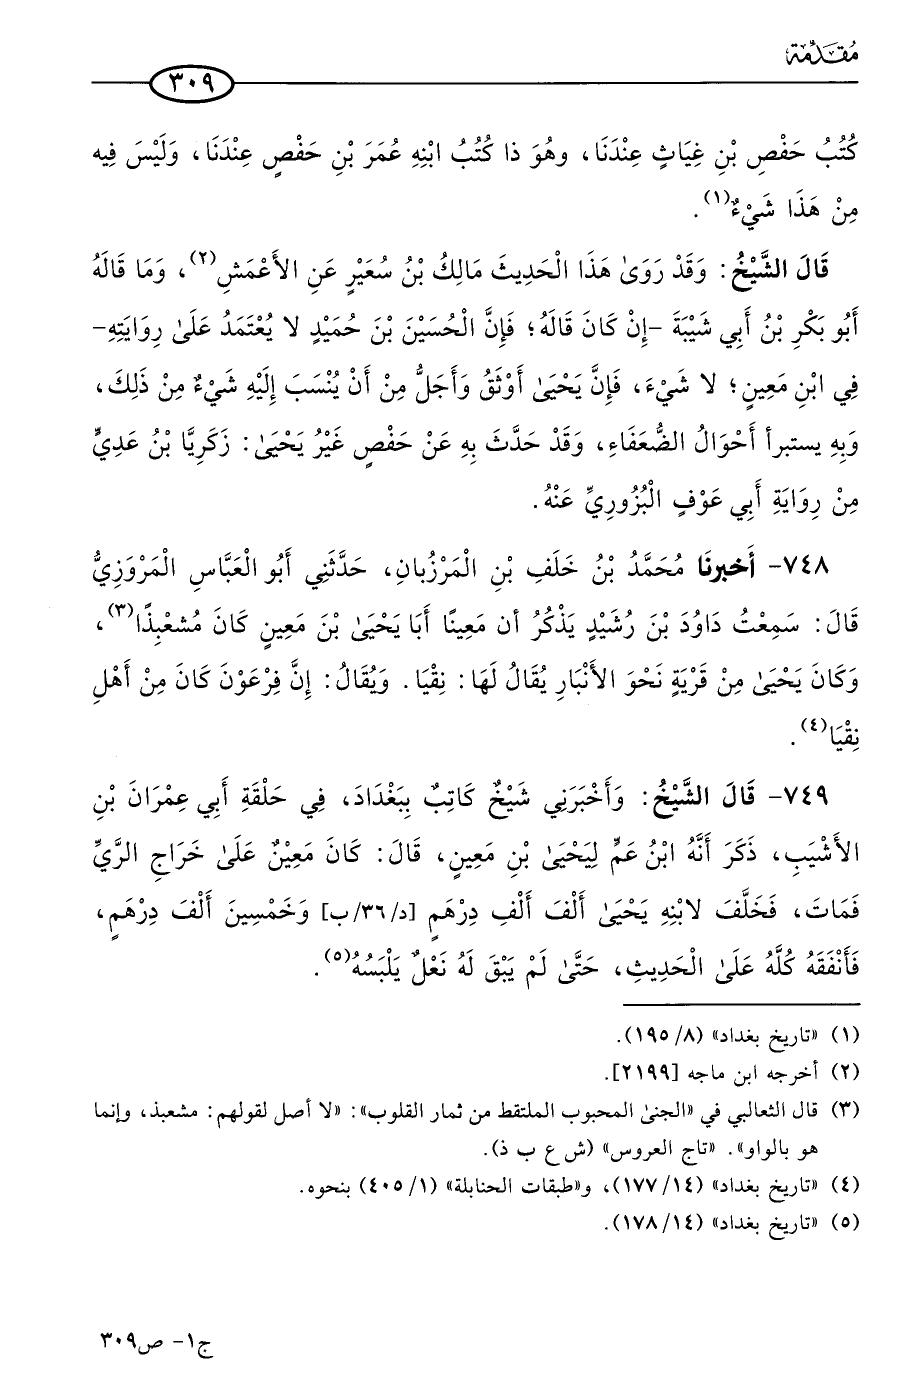 مُقَدِّمَة
٣٠٩
كُتُبُ حَفْصِ بْنِ غِيَاثٍ عِنْدَنَا، وهُوَ ذَا كُتُبُ ابْنِهِ عُمَرَ بْنِ حَفْصٍ عِنْدَنَا، وَلَيْسَ فِيه
مِنْ هَذَا شَيْءٌ(١).
قَالَ الشَّيْخُ: وَقَدْ رَوَىٰ هَذَا الْحَدِيثَ مَالِكُ بْنُ سُعَيْرٍ عَنِ الأَعْمَشِ(٢)، وَمَا قَالَهُ
أَبُو بَكْرِ بْنُ أَبِي شَيْبَةَ -إِنْ كَانَ قَالَهُ؛ فَإِنَّ الْحُسَيْنَ بْنَ حُمَيْدٍ لا يُعْتَمَدُ عَلَىٰ رِوَايَتِهِ-
فِي ابْنِ مَعِينٍ؛ لا شَيْءَ، فَإِنَّ يَحْيَىٰ أَوْثَقُ وَأَجَلُّ مِنْ أَنْ يُنْسَبَ إِلَيْهِ شَيْءٌ مِنْ ذَلِكَ،
وَبِهِ يستبرأ أَحْوَالُ الضُّعَفَاءِ، وَقَدْ حَدَّثَ بِهِ عَنْ حَفْصٍ غَيْرُ يَحْيَىٰ: زَكَرِيَّا بْنُ عَدِيٍّ
مِنْ رِوَايَةِ أَبِي عَوْفٍ الْبُزُورِيِّ عَنْهُ.
٧٤٨- أَخبرنَا مُحَمَّدُ بْنُ خَلَفِ بْنِ الْمَرْزُبانِ، حَدَّثَنِي أَبُو الْعَبَّاسِ الْمَرْوَزِيُّ
قَالَ: سَمِعْتُ دَاوُدَ بْنَ رُشَيْدٍ يَذْكُرُ أن مَعِينًا أَبَا يَحْيَىٰ بْنَ مَعِينٍ كَانَ مُشعْبِذًا(٣)،
وَكَانَ يَحْيَىٰ مِنْ قَرْيَةٍ نَحْوَ الأَنْبَارِ يُقَالُ لَهَا: نِقْيَا. وَيُقَالُ: إِنَّ فِرْعَوْنَ كَانَ مِنْ أَهْلِ
نِقْيَا(٤).
٧٤٩- قَالَ الشَّيْخُ: وَأَخْبَرَنِي شَيْخٌ كَاتِبٌ بِبَغْدَادَ، فِي حَلْقَةِ أَبِي عِمْرَانَ بْنِ
الأَشْيَبِ، ذَكَرَ أَنَّهُ ابْنُ عَمٍّ لِيَحْيَىٰ بْنِ مَعِينٍ، قَالَ: كَانَ مَعِيْنٌ عَلَىٰ خَرَاجِ الرَّيِّ
فَمَاتَ، فَخَلَّفَ لابْنِهِ يَحْيَىٰ أَلْفَ أَلْفِ دِرْهَمٍ [د/٣٦/ب] وَخَمْسِينَ أَلْفَ دِرْهَمٍ،
فَأَنْفَقَهُ كُلَّهُ عَلَىٰ الْحَدِيثِ، حَتَّىٰ لَمْ يَبْقَ لَهُ نَعْلٌ يَلْبَسُهُ(٥).
(١) «تاريخ بغداد» (١٩٥/٨).
(٢) أخرجه ابن ماجه [٢١٩٩].
(٣) قال الثعالبي في «الجنىٰ المحبوب الملتقط من ثمار القلوب»: «لا أصل لقولهم: مشعبذ، وإنما
هو بالواو». «تاج العروس» (ش ع ب ذ).
(٤) «تاريخ بغداد» (١٧٧/١٤)، و«طبقات الحنابلة» (٤٠٥/١) بنحوه.
(٥) «تاريخ بغداد» (١٧٨/١٤).
ج١- ص٣٠٩